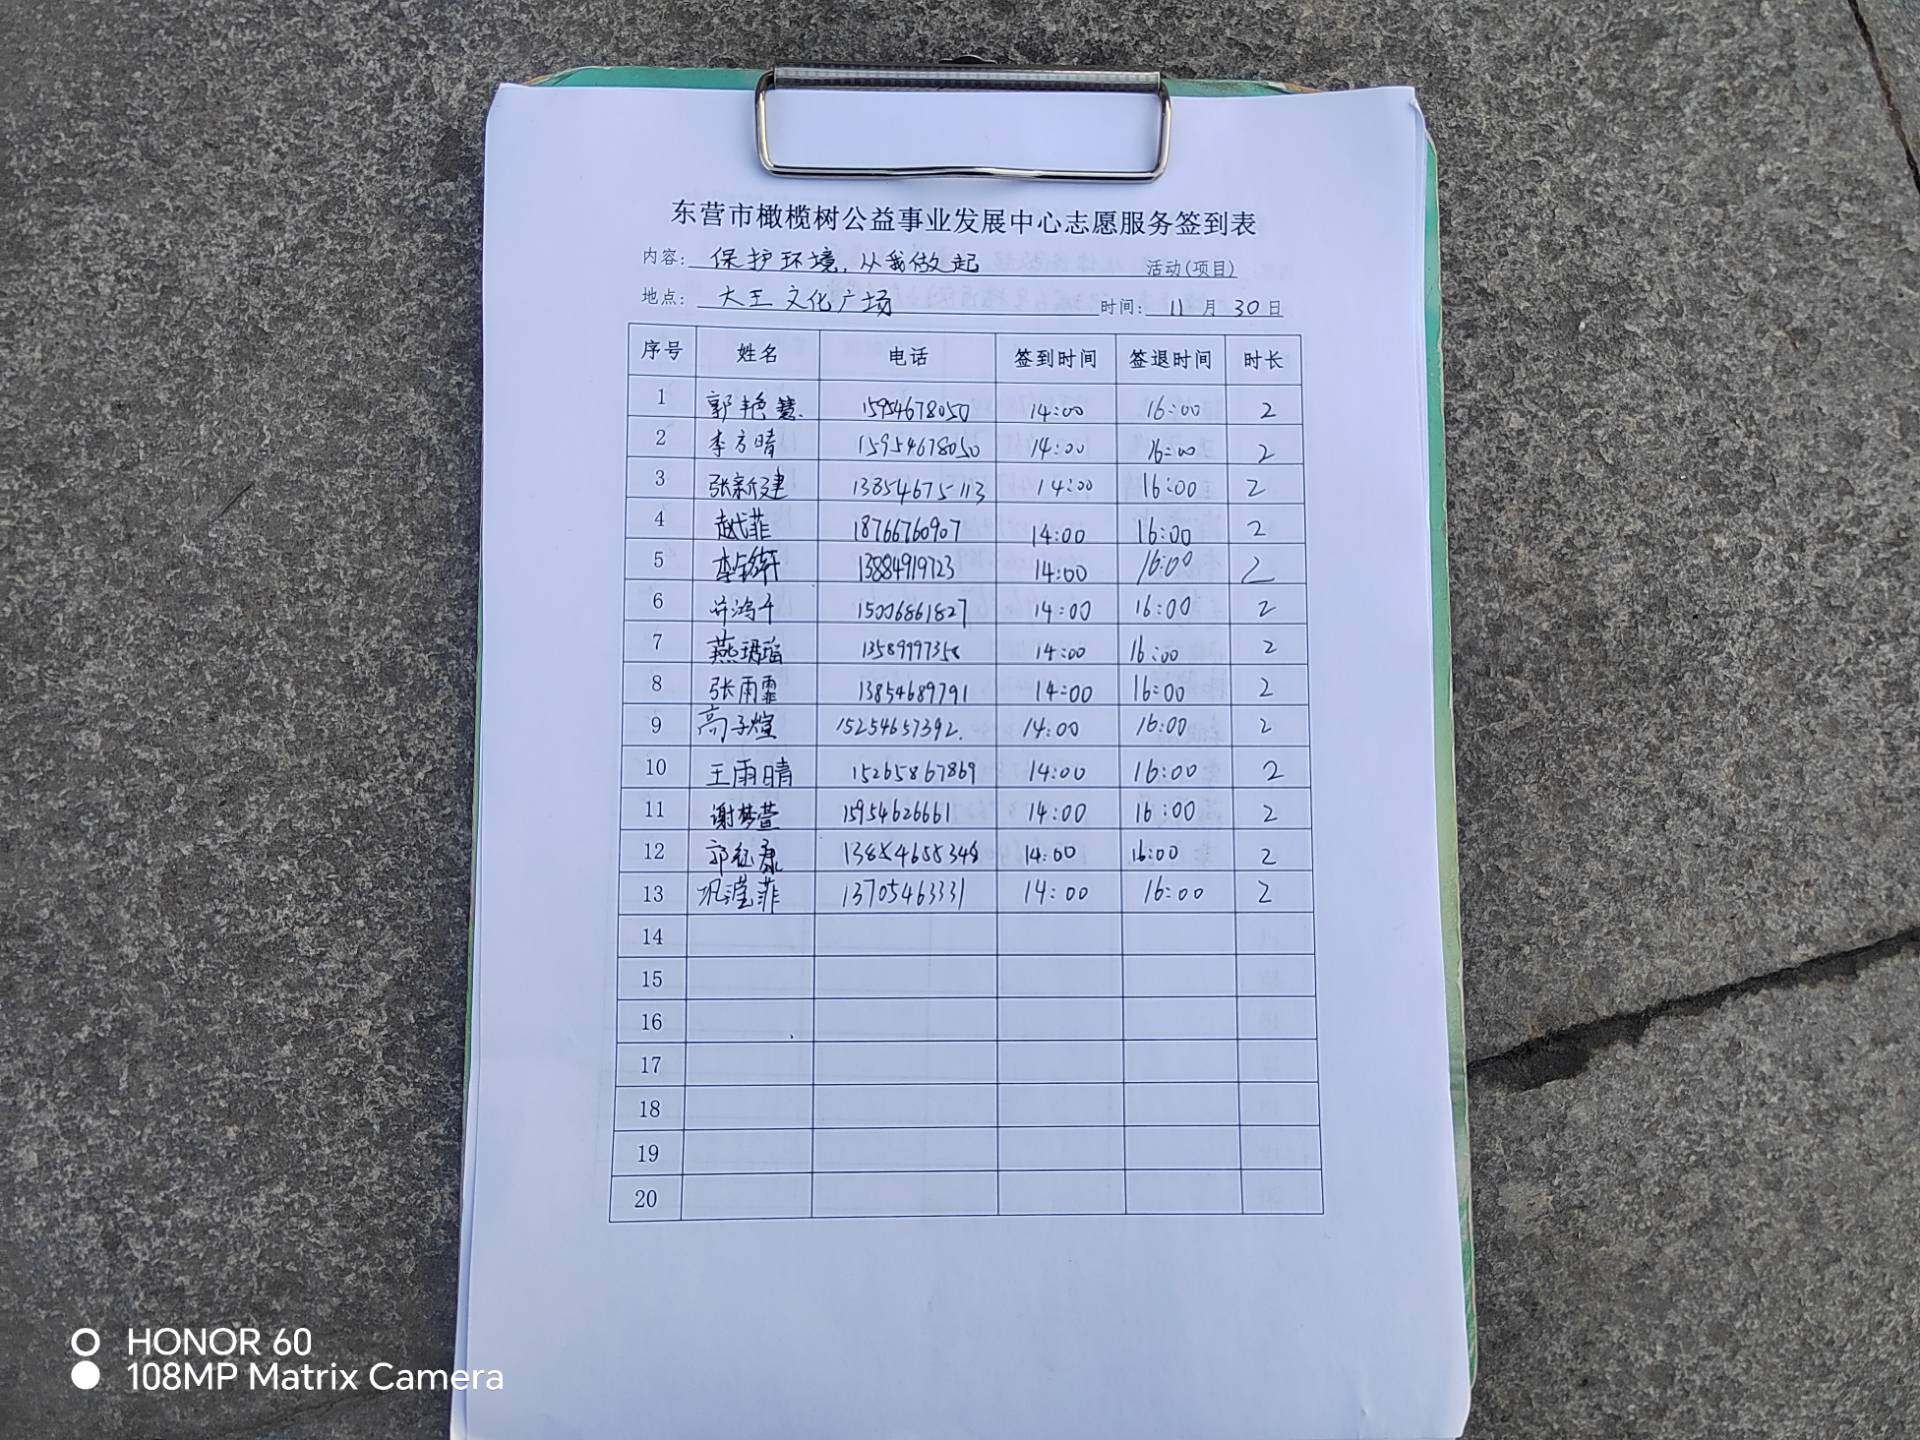 东营市橄榄树公益事业发展中心志愿服务签到表
内容: 保护环境,从我做起 活动(项目)
地点: 大王文化广场 时间: 11月30日
序号 姓名 电话 签到时间 签退时间 时长
1 郭艳慧 15954678050 14:00 16:00 2
2 李方晴 15954678050 14:00 16:00 2
3 张新建 13854675113 14:00 16:00 2
4 赵菲 18766760907 14:00 16:00 2
5 13884919723 14:00 16:00 2
6 15006861827 14:00 16:00 2
7 燕珺瑶 14:00 16:00 2
8 张雨霏 13854689791 14:00 16:00 2
9 高子煊 15254657392. 14:00 16:00 2
10 王雨晴 15265867869 14:00 16:00 2
11 谢梦萱 15954626661 14:00 16:00 2
12 13854655348 14:00 16:00 2
13 巩滢菲 13705463331 14:00 16:00 2
14
15
16
17
18
19
20
HONOR 60
108MP Matrix Camera